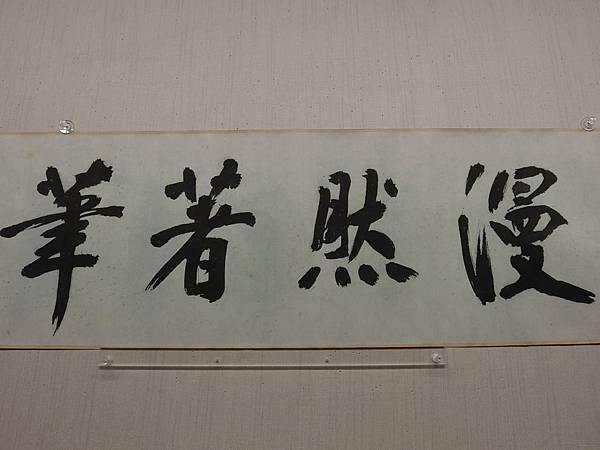 漫然著筆